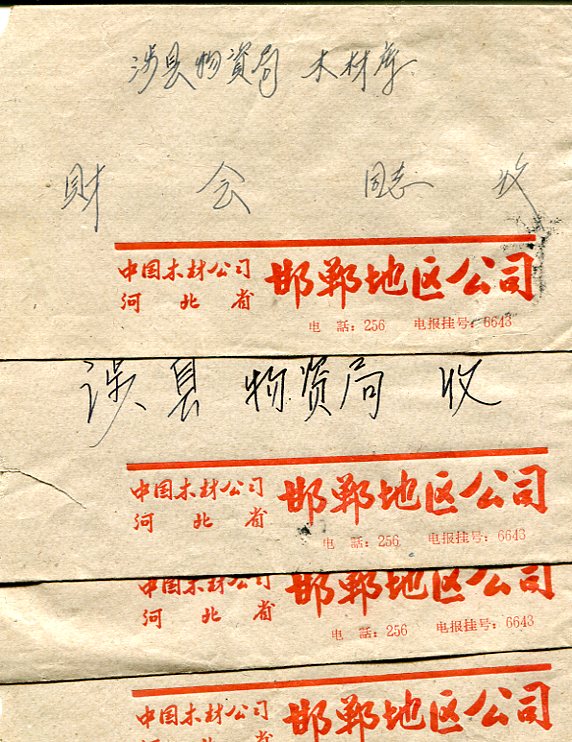 涉县物資局 木材库
財 会 同志 收
中国木材公司
河北省
邯郸地区公司
电 話：256 电报挂号：6643
涉县 物资局 收
中国木材公司
河北省
邯郸地区公司
电 話：256 电报挂号：6643
中国木材公司
河北省
邯郸地区公司
电 話：256 电报挂号：6643
中国木材公司
河北省
邯郸地区公司